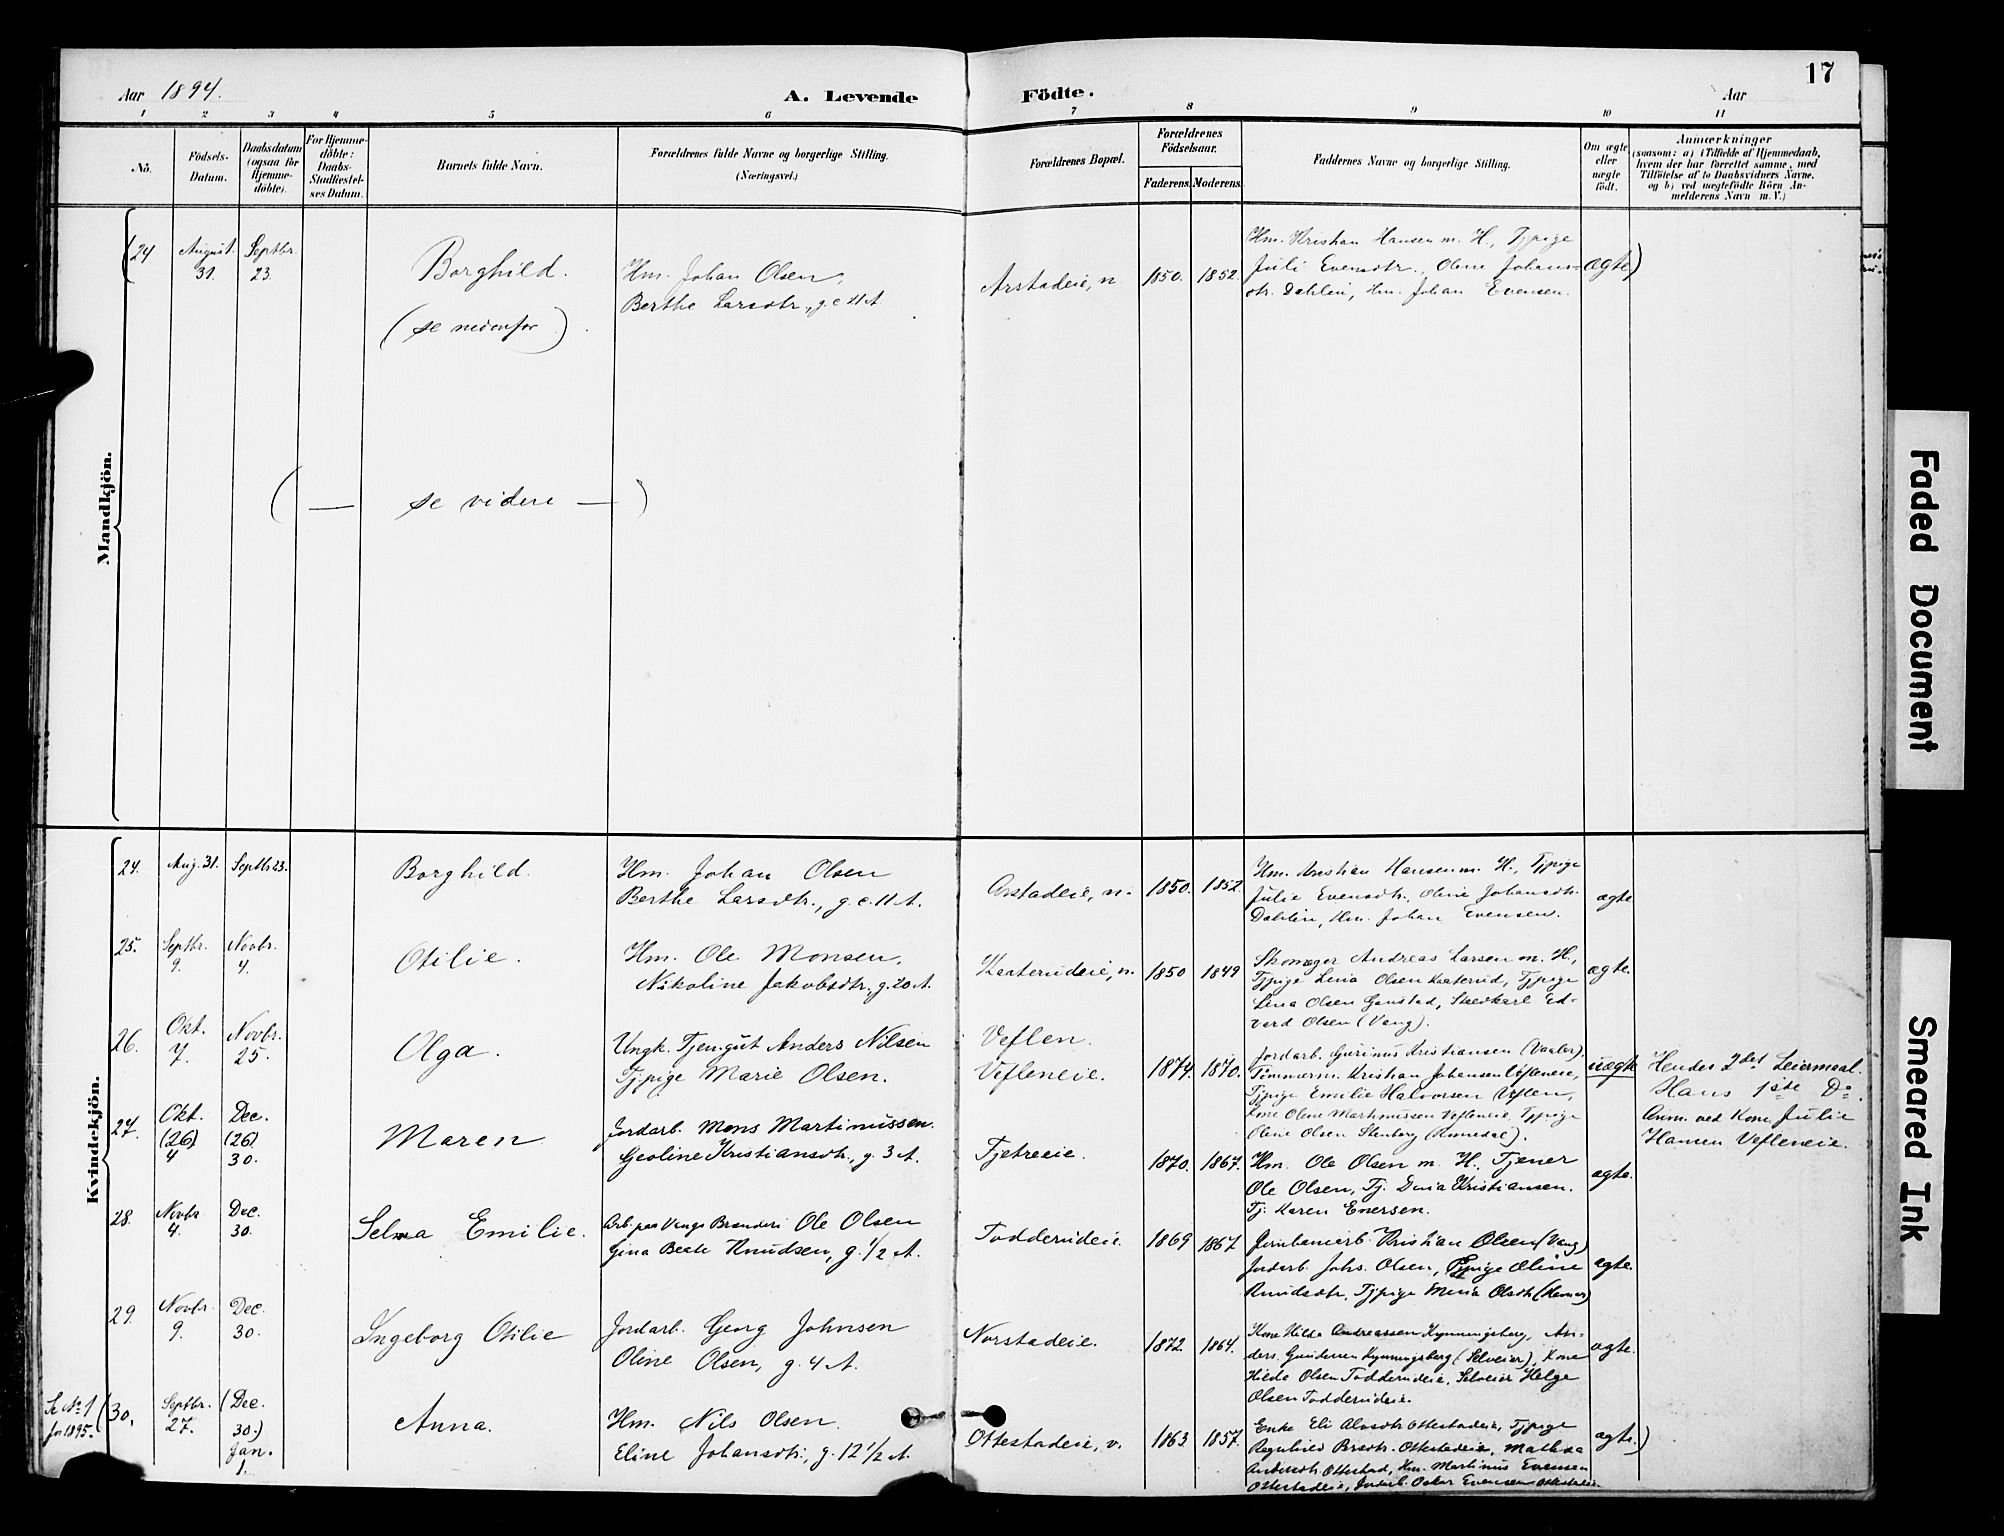 17
Aar 1894.
A. Levende Födte.
Aar
1 2 3 4 5 6 7 8 9 10 11
No.
Födsels-
Datum.
Daabsdatum
(ogsaa for
Hjemme-
döbte).
For Hjemme-
döbte:
Daabs-
Stadfæstel-
ses Datum.
Barnets fulde Navn.
Forældrenes fulde Navne og borgerlige Stilling.
(Næringsvei.)
Forældrenes Bopæl.
Forældrenes
Födselsaar.
Faderens. Moderens.
Faddernes Navne og borgerlige Stilling.
Om ægte
eller
uægte
födt.
Anmærkninger
(saasom: a) i Tilfælde af Hjemmedaab,
hvem der har forrettet samme, med
Tilföielse af to Daabsvidners Navne.
og b) ved uægtefödte Börn An-
melderens Navn m. V.)
Mandkjön.
(24
August
31.
Septbr.
23.
Borghild.
(se nedenfor)
Hm. Johan Olsen,
Berthe Larsdtr., g. c. 11 A
Arstadeie, n.
1850.
1852.
Hm. Kristian Hansen m. H., Tjpige
Juli Evensdtr., Oline Johans-
dtr. Dahlen, Hm. Johan Evensen.
ægte)
( — se videre — )
Kvindekjön.
24.
Aug. 31.
Septbr 23.
Borghild.
Hm. Johan Olsen
Berthe Larsdtr., g. c. 11 A.
Arstadeie, n.
1850.
1852.
Hm. Kristian Hansen m. H., Tjpige
Julie Evensdtr., Oline Johansdtr.
Dahlen, Hm. Johan Evensen.
ægte
25.
Septbr.
9.
Novbr.
4.
Otilie.
Hm. Ole Monsen,
Nikoline Jakobsdtr., g. 20 A.
Kaaterudeie, n.
1850
1849
Skomager Andreas Larsen m. H.,
Tjpige Lina Olsen Kaaterud, Tjpige
Lina Olsen Gaustad, Ed-
vard Olsen (Vang).
ægte.
26.
Okt.
7.
Novbr.
25.
Olga.
Ungk. Tjen.gut Anders Nilsen
Tjpige Marie Olsen.
Veflen.
Vefleneie.
1874.
1870.
Jordarb. Gurinus Kristiansen (Vaaler).
Tømmerm. Kristian Johansen Vefleneie,
Tjpige Emilie Halvorsen Veflen,
Kone Oline Martinussen Vefleneie, Tjpige
Oline Olsen Stenberg (Romedal).
uægte
Hendes 2det Leiermaal.
Hans 1ste Do.
Anm. ved Kone Julie
Hansen Vefleneie.
27.
Okt.
(26)
4
Dec.
(26)
30.
Maren
Jordarb. Mons Martinussen.
Geoline Kristiansdtr., g. 3 A.
Fjetreeie.
1870.
1867.
Hm. Ole Olsen m. H., Tjener
Ole Olsen, Tj. Kristiansen.
Tj. Karen Enersen.
ægte.
28.
Novbr
4.
Dec.
30.
Selma Emilie.
Arb. paa Vangs Brænderi Ole Olsen
Gina Beate Knudsen, g. 1/2 A.
Todderudeie.
1869
1867
Jernbanearb. Kristian Olsen (Vang)
Jordarb. Johs. Olsen, Tjpige Oline
Knudsdtr, Tjpige Olsdtr
ægte.
29.
Novbr.
9.
Dec.
30.
Ingeborg Otilie
Jordarb. Georg Johnsen
Oline Olsen, g. 4 A.
Norstadeie.
1872.
1864.
Kone Hilda Andreassen Kynningsberg, An-
ders Gundersen Kynningsberg (Selveier), Kone
Hilda Olsen Todderudeie, Selveier Helge
Olsen Todderudeie.
ægte.
Se No. 1
for 1895.
(30.
Septbr.
27.
(Dec.
30.)
Jan.
1.
Anna.
Hm. Nils Olsen.
Eline Johansdtr., g. 12 1/2 A.
Ottestadeie, v.
1863
1857.
Enke Eli Olsdtr Ottestadeie, Tjpige
Ragnhild Ottestadeie, Mathea
Andersdtr. Ottestad, Hm. Martinus Evensen
Ottestadeie, Jordarb. Oskar Evensen Ottestadeie.
ægte.)
Faded Document
Smeared Ink